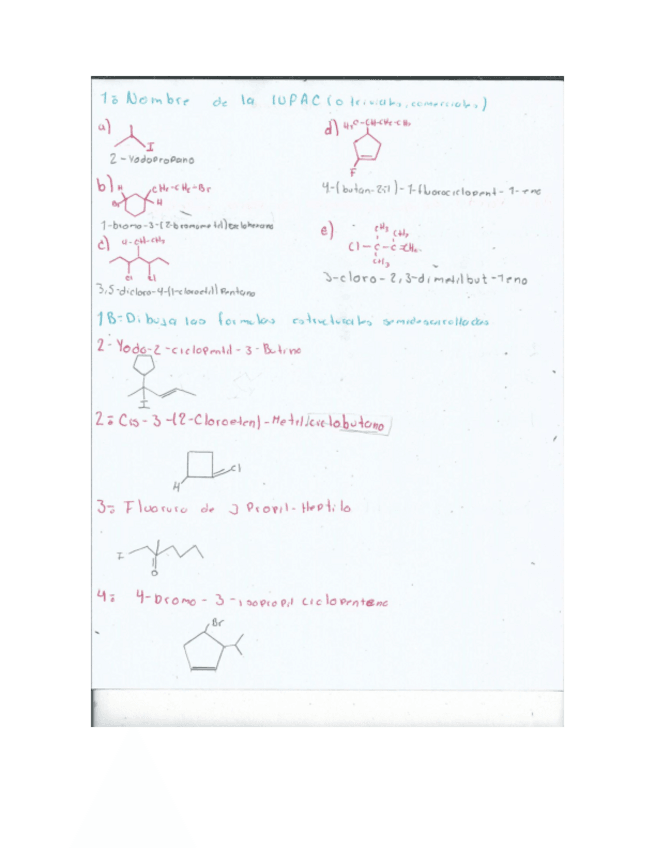 1º Nombre de la IUPAC (o triviales, comerciales)
a)
I
2-Yodopropano
b) H CH₂-CH₂-Br
Br H
1-bromo-3-(2-bromometil)
c) Cl-CH-CH₃
Cl Cl
3,5-dicloro-4-(1-cloroetil) Pentano
d) H₃C-CH-CH₂-CH₃
F
4-(butan-2il)-1-fluorociclopent-1-eno
e) CH₃ CH₃
Cl-C-C=CH₂
CH₃
3-cloro-2,3-dimetilbut-1eno
1B=Dibuja las formulas estructurales semidesarrolladas
2-Yodo-2-ciclopentil-3-Butino
I
2º Cis-3-(2-Cloroeten)-Metilciclobutano
Cl
H
3= Fluoruro de 3 Propil-Heptilo
I
O
4= 4-bromo-3-isopropil ciclopenteno
Br